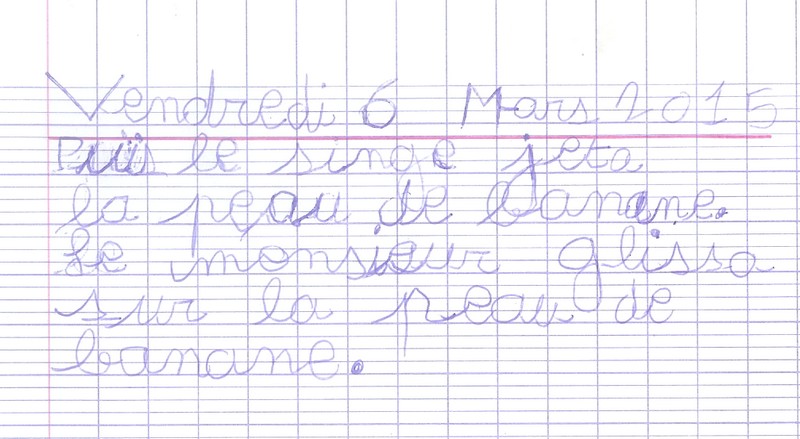 Vendredi 6 Mars 2015
Puis le singe jeta
la peau de banane.
Le monsieur glissa
sur la peau de
banane.